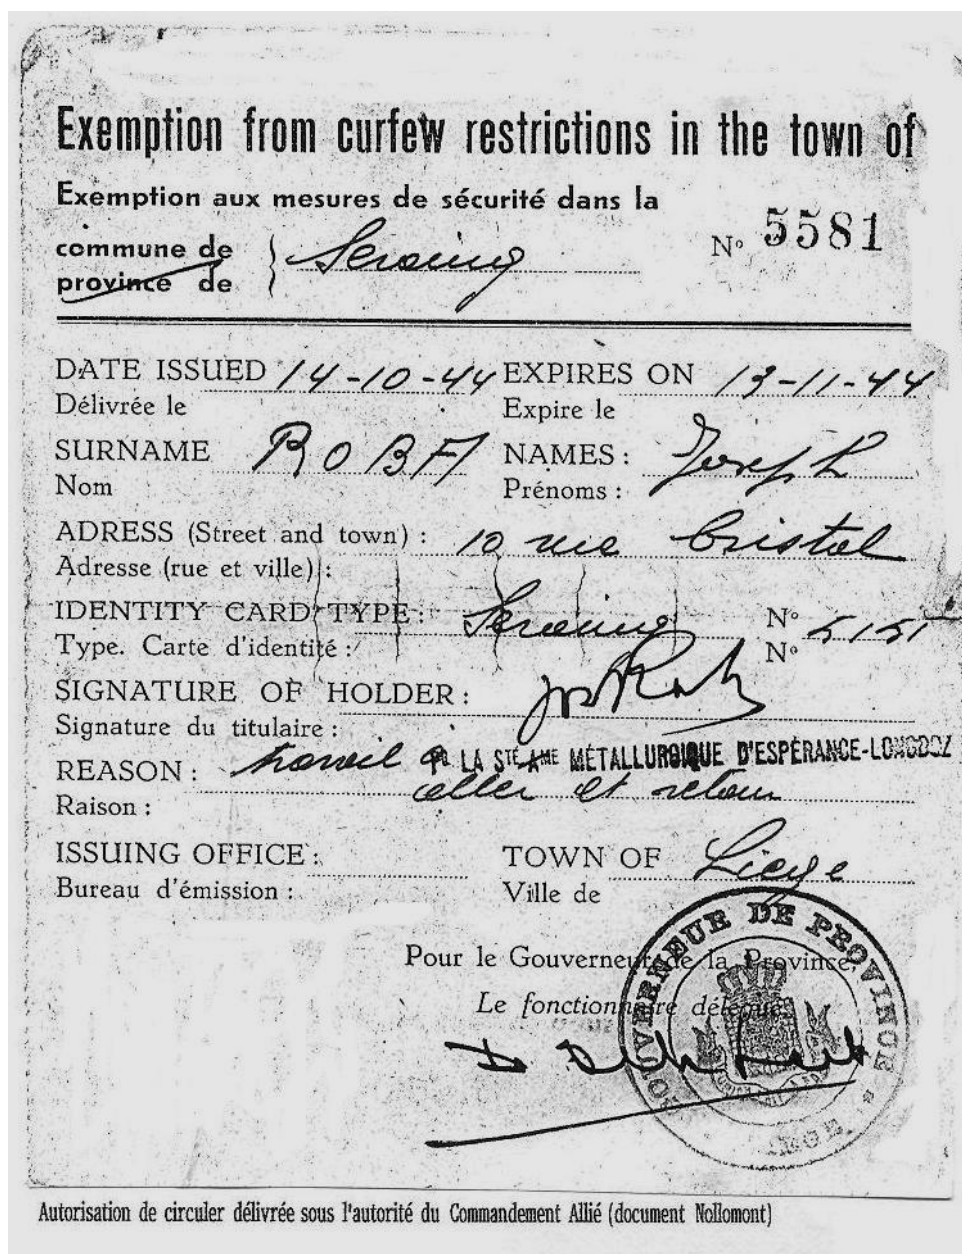 Exemption from curfew restrictions in the town of
Exemption aux mesures de sécurité dans la
commune de
province de
Seraing
N° 5581
DATE ISSUED 14-10-44 EXPIRES ON 13-11-44
Délivrée le Expire le
SURNAME ROBA NAMES : Joseph
Nom Prénoms :
ADRESS (Street and town) : 10 rue Cristal
Adresse (rue et ville) :
IDENTITY CARD TYPE : Seraing N° 5151
Type. Carte d'identité : N°
SIGNATURE OF HOLDER :
Signature du titulaire :
REASON : travail à LA STÉ AME MÉTALLURGIQUE D'ESPÉRANCE-LONGDOZ
aller et retour
Raison :
ISSUING OFFICE : TOWN OF Liege
Bureau d'émission : Ville de
Pour le Gouverneur de la Province,
Le fonctionnaire délégué
GOUVERNEUR DE PROVINCE
Autorisation de circuler délivrée sous l'autorité du Commandement Allié (document Nollomont)